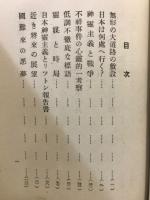 目次
無形の大道路の敷設
日本は何處へ行く?
神靈主義と戰爭
不祥事件の心靈的一考察
低調不徹底な標語
靈媒と時局
日本神靈主義とリツトン報告書
近き將來の展望
國難來の惡夢